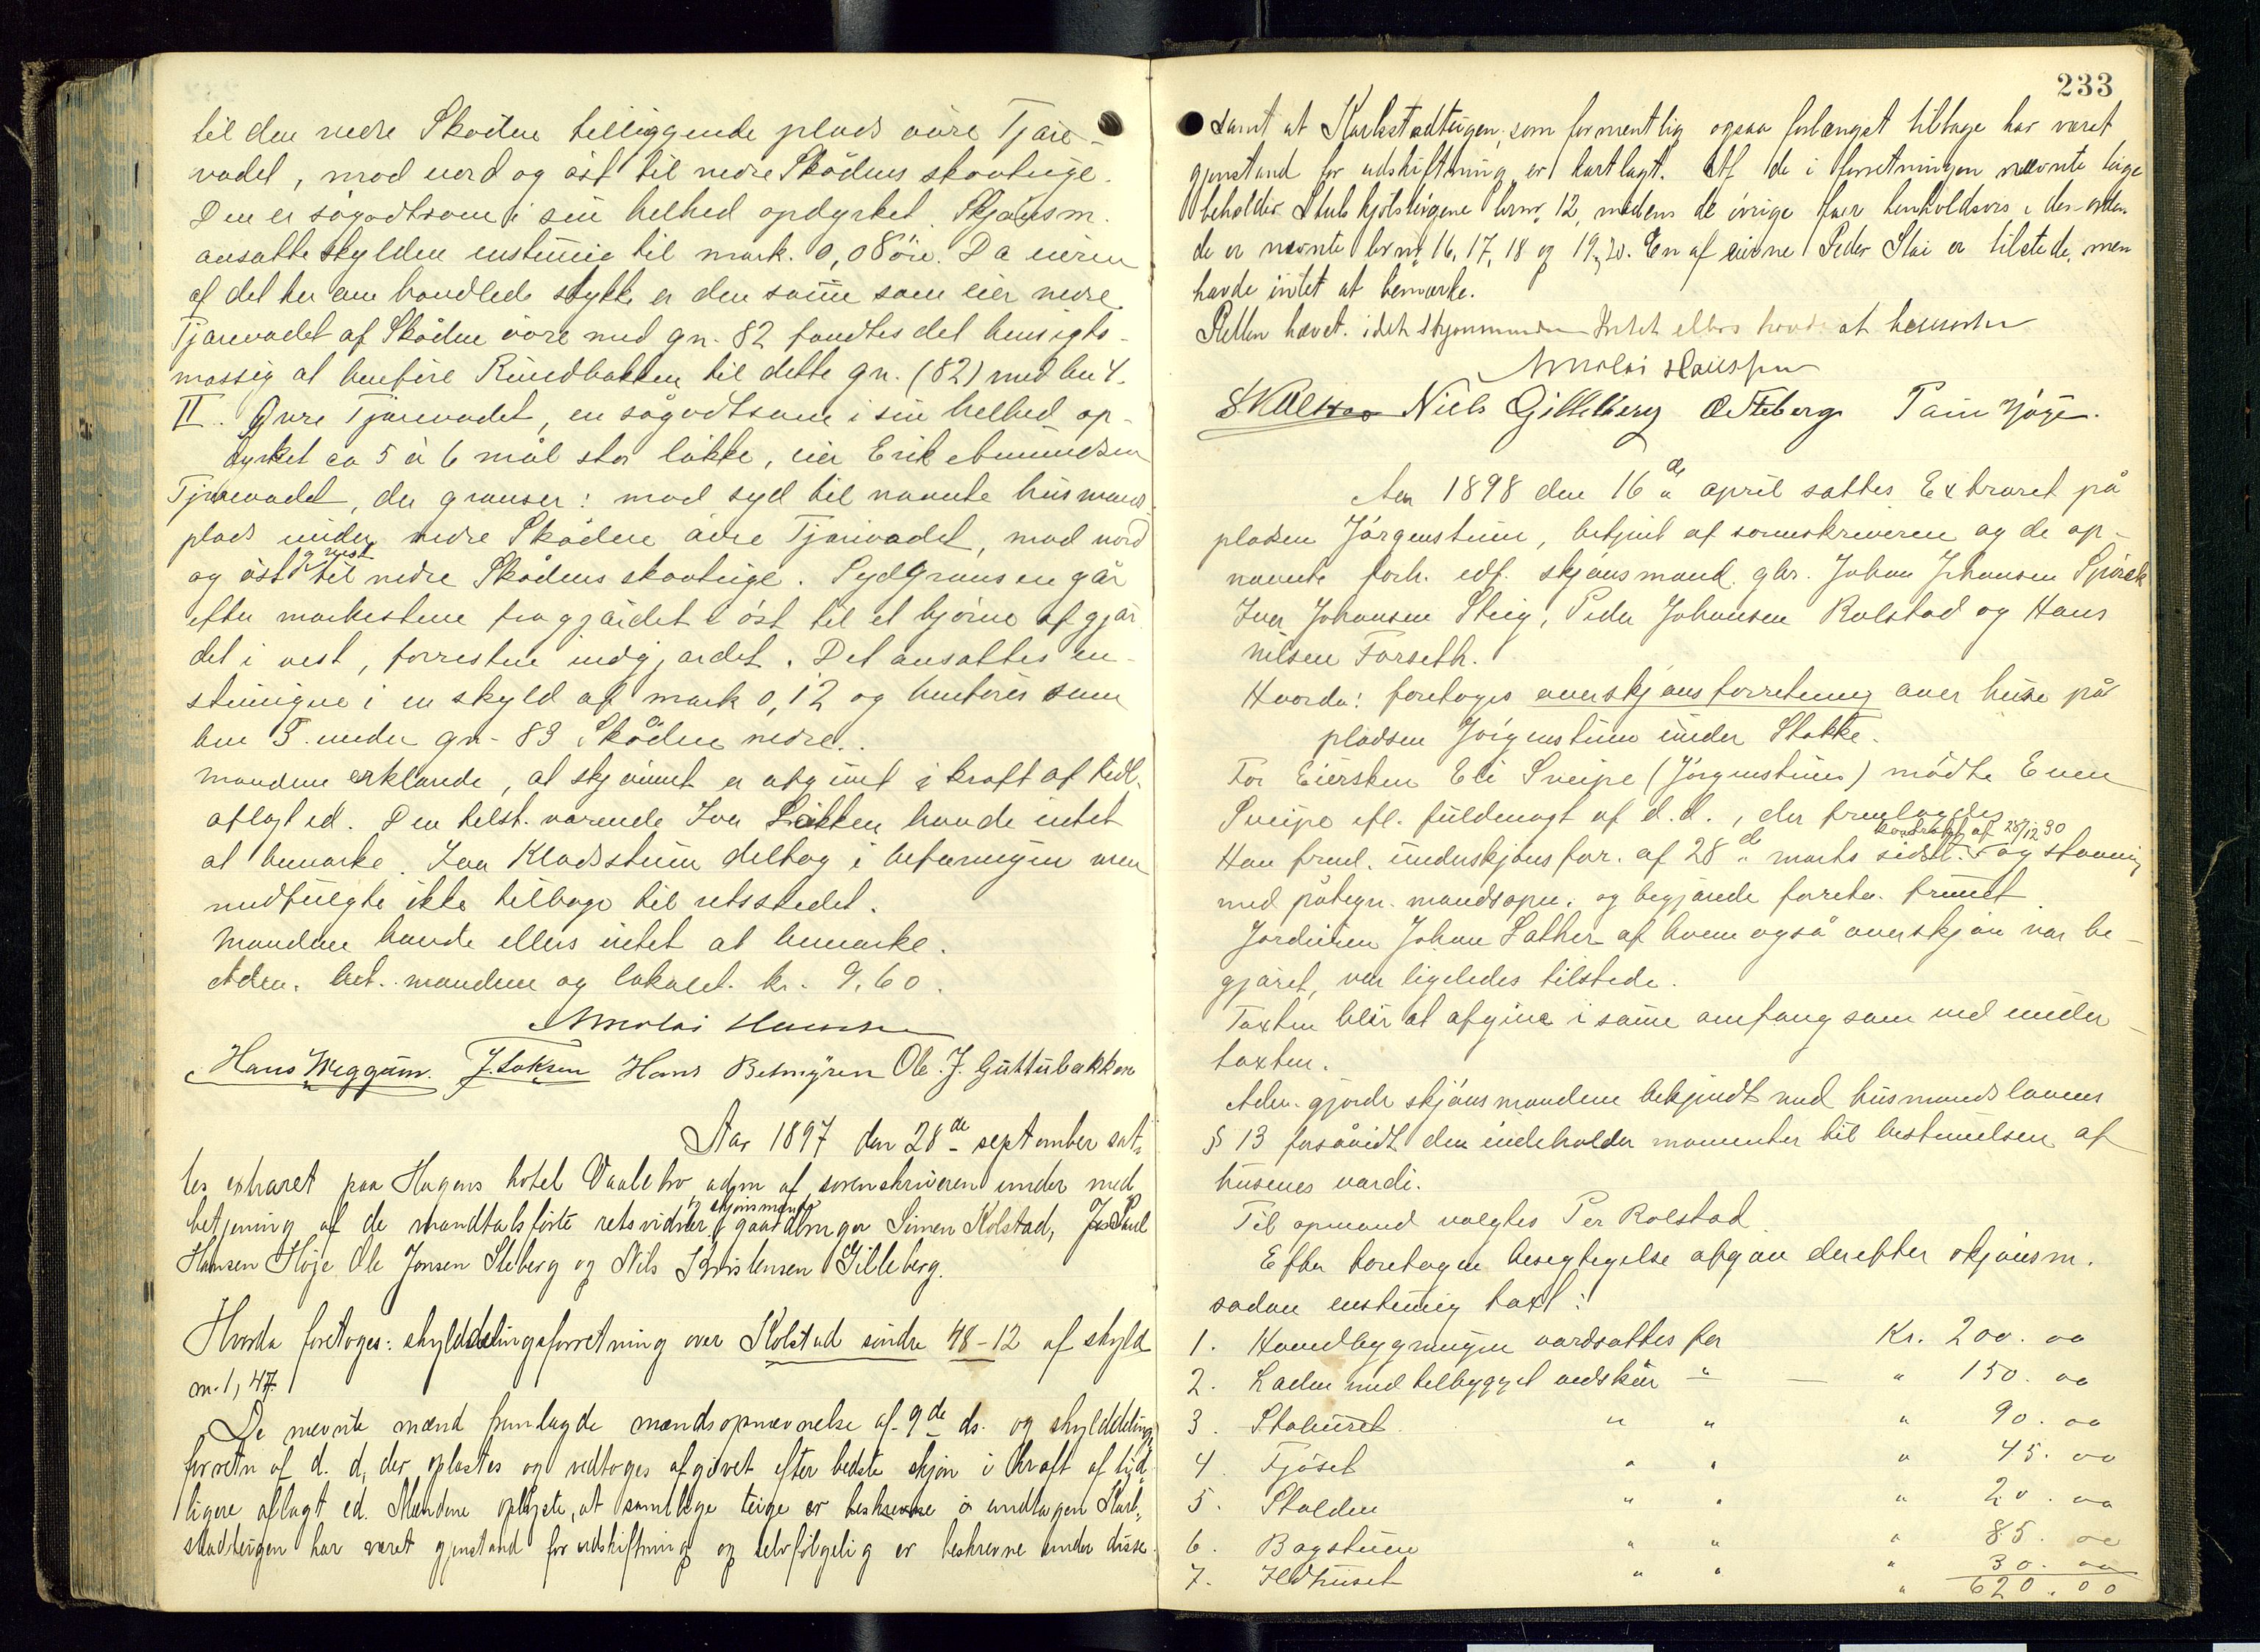 til den nedre Skåden tilliggende plads övre Tjære-
vadet, mod nord og öst til nedre Skådens skovteige.
Den er sågodtsom i sin helhed opdyrket. Skjönsm.
ansatte skylden enstemmig til mark. 0,08 öre. Da eieren
af det her om handlede stykke er den samme som eier nedre
Tjærevadet af Skåden övre med gn. 82 fandtes det hensigts-
mæssig at henføre Rundbakken til dette gn. (82) med bn 4.
II. Övre Tjærevadet, en sågodtsom i sin helhed op-
dyrket ca 5 à 6 mål stor løkke, eier Erik Amundsen
Tjærevadet, der grænser: mod syd til nævnte husmands
plads under nedre Skåden övre Tjærevadet, mod nord
og öst og vest til nedre Skådens skovteige. Sydgrænsen går
efter markestene fra gjærdet i öst til et hjörne af gjær
det i vest, forresten indgjærdet. Det ansattes en-
stemmigen i en skyld af mark 0,12 og henføres som
bn 5. under gn. 83 Skåden nedre.
Mændene erklærede, at skjönnet er afgivet i kraft af tidl.
aflagt ed. Den tilst. værende Iver Løkken havde intet
at bemærke. Iver Kladsstuen deltog i befaringen men
medfulgte ikke tilbage til retsstedet.
Mændene havde ellers intet at bemærke.
Adm. bet. mændene og lokalet. kr. 9,60.
Nicolai Hanssen
Hans Meggum. J. Loksen Hans Betmyren Ole J. Guttubakken
Aar 1897 den 28de september sat-
tes extraret paa Hagens hotel Vaalebro adm af sorenskriveren under med
betjening af de mandtalsførte retsvidner og skjönsmænd gaardbruger Simen Kolstad, Paul
Hansen Høje, Ole Jonsen Steberg og Nils Kristensen Gilleberg.
Hvorda foretoges: skylddelingsforretning over Kolstad søndre 48-12 af skyld
m. 1,47.
De nævnte mænd fremlagde mændsopnævnelse af 9de ds. og skylddelings
forretn af d. d, der oplæstes og vedtoges afgivet efter bedste skjön i kraft af tid-
ligere aflagt ed. Mændene oplyste, at samtlige teige er undtagen Karl-
stadteigen har været gjenstand for udskiftning og selvfølgelig er beskrevne under disse
233
samt at Karlsstadteigen, som formentlig ogsaa forlængst tilbage har været
gjenstand for udskiftning er kartlagt. Af de i forretningen nævnte teige
beholder Stubkjølsteigene brnr. 12, medens de övrige faar henholdsvis i den orden
de er nævnte brnr. 16, 17, 18 og 19, 20. En af eierne Peder Stai er tilstede, men
havde intet at bemærke.
Retten hævet. idet skjønsmændene Intet ellers havde at bemærke
Nicolai Hanssen
S. Kolstad Niels Gilleberg O Steberg Paul Höje.
Aar 1898 den 16de april sattes Extraret på
pladsen Jörgenstuen, betjent af sorenskriveren og de op-
nævnte forh. edf. skjönsmænd gbr. Johan Johansen Spirik
Iver Johansen Steig, Peder Johansen Rolstad og Hans
Nilsen Forseth.
Hvorda: foretoges overskjöns forretning over huse på
pladsen Jörgenstuen under Stokke.
For Eiersken Eli Sveipe (Jörgenstuen) mödte Even
Sveipe efl. fuldmagt af d. d., der fremlagdes
Han freml. underskjöns for. af 28de marts sidstl. kontrakt af 28/12 90 og stævning
med påtegn. mandsopn. og begjærede forretn. fremmet
Jordeieren Johan Sather af hvem også overskjön var be-
gjæret, var ligeledes tilstede.
Taxten blir at afgive i samme omfang som ved under-
taxten.
Adm. gjorde skjönsmændene bekjendt med husmandslovens
§ 13 forsåvidt den indeholder momenter til bestemmelsen af
husenes værdi.
Til opmand valgtes Per Rolstad.
Efter foretagen besigtigelse afgav derefter skjönsm.
sådan enstemmig taxt:
1. Hovedbygningen værdsattes for Kr. 200. 00
2. Laden med tilbygget vedskur " — " 150. 00
3. Stabburet " " " 90. 00
4. Fjöset " " " 45. 00
5. Stalden " " " 20. 00
6. Bagstuen " " " 85. 00
7. Ildhuset " " " 30. 00
" 620. 00